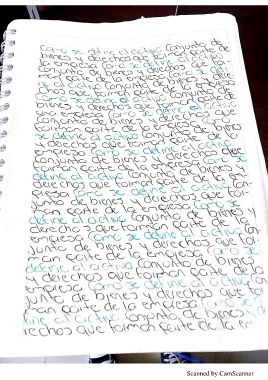 Como se define el activo Conjunto de
bienes y derechos que forman
conjunto de bienes y derechos que for-
man parte de la empresa Como se de
bienes y derechos que forman parte de
una empresa Como se define el activo
Conjunto de bienes y derechos que
forman parte de la empresa Como
se define el activo Conjunto de bienes
y derechos que forman parte de la
empresa Como se define el activo
conjunto de bienes y derechos
que forman parte de la empresa Como se
define el activo Conjunto de bienes
y derechos que forman parte de la em-
presa Como se define el activo Con-
junto de bienes y derechos que for-
man parte de la empresa Como se
define el activo Conjunto de bienes y
derechos que forman parte de la
empresa Como se define el activo con-
junto de bienes y derechos que for-
man parte de la empresa Como se
define el activo Conjunto de bienes
y derechos que forman parte de la
empresa Como se define el activo con
junto de bienes y derechos que for
man parte de la empresa Como se de
fine el activo Conjunto de bienes y de
rechos que forman parte de la em
Scanned by CamScanner